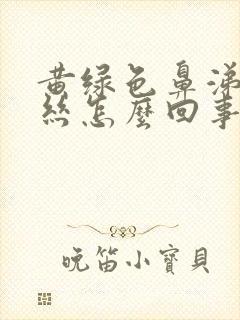 黄绿色鼻涕
丝怎麼回事
晚笛小寶貝